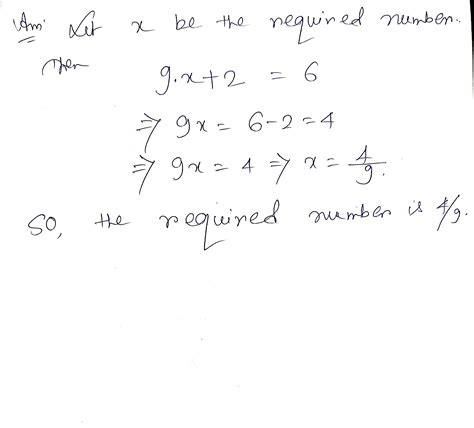 Ans: Let x be the required number.
Then
9.x+2 = 6
⇒ 9x = 6-2=4
⇒ 9x = 4 ⇒ x = 4/9.
So, the required number is 4/9.